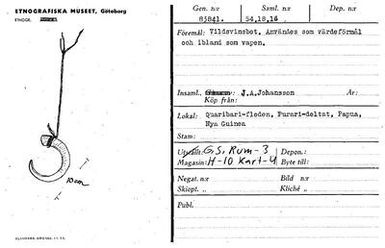 ETNOGRAFISKA MUSEET, Göteborg
10 cm
Gen. n:r
Saml. n:r
Dep. n:r
83841.
54.18.16
Föremål: Vildsvinsbet. Användes som värdeförmål
och ibland som vapen.
Insaml.,
J.A.Johansson
År:
Köp från:
Lokal: Quaribari-floden, Purari-deltat, Papua,
Nya Guinea
Stam:
GS. Rum-3
Depon.:
Magasin: H-10 Kart-4
Byte till:
Negat. n:r
Bild n:r
Skiopt. „
Kliché „
Publ.